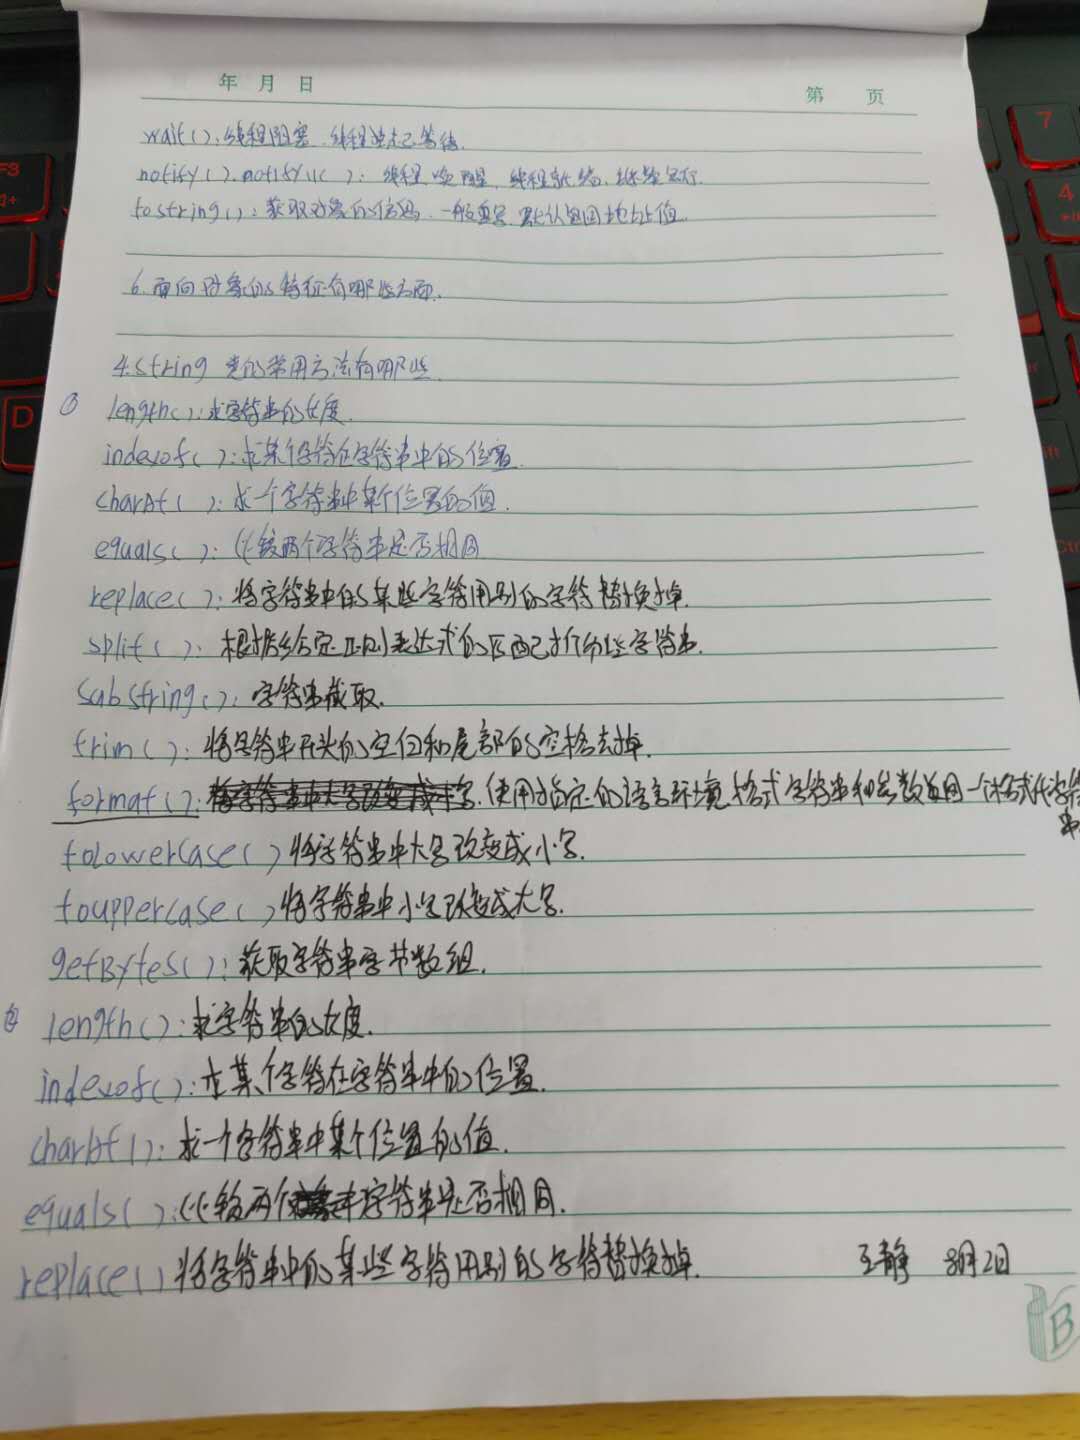 年 月 日
第 页
wait():线程阻塞.线程进入等待.
notify().notifyll():线程唤醒.线程就绪.继续运行.
tostring():获取对象的信息.一般重写.默认返回地址值.
6.面向对象的特征有哪些方面.
4.string 类的常用方法有哪些.
① length():求字符串的长度.
indexof():求某个字符在字符串中的位置.
charAt():求一个字符串中某个位置的值.
equals():比较两个字符串是否相同
replace():将字符串中的某些字符用别的字符替换掉.
split():根据给定正则表达式的匹配拆分此字符串.
substring():字符串截取.
trim():将字符串开头的空白和尾部的空格去掉.
format():使用指定的语言环境格式字符串和参数返回一个格式化字符
串
toLowerCase()将字符串中大写改变成小写.
touppercase()将字符串中小写改变成大写.
getBytes():获取字符串字节数组.
② length():求字符串的长度.
indexof():求某个字符在字符串中的位置.
charAt():求一个字符串中某个位置的值.
equals():比较两个字符串是否相同.
replace()将字符串中的某些字符用别的字符替换掉.
王静 8月2日
B
F3
7
4
D